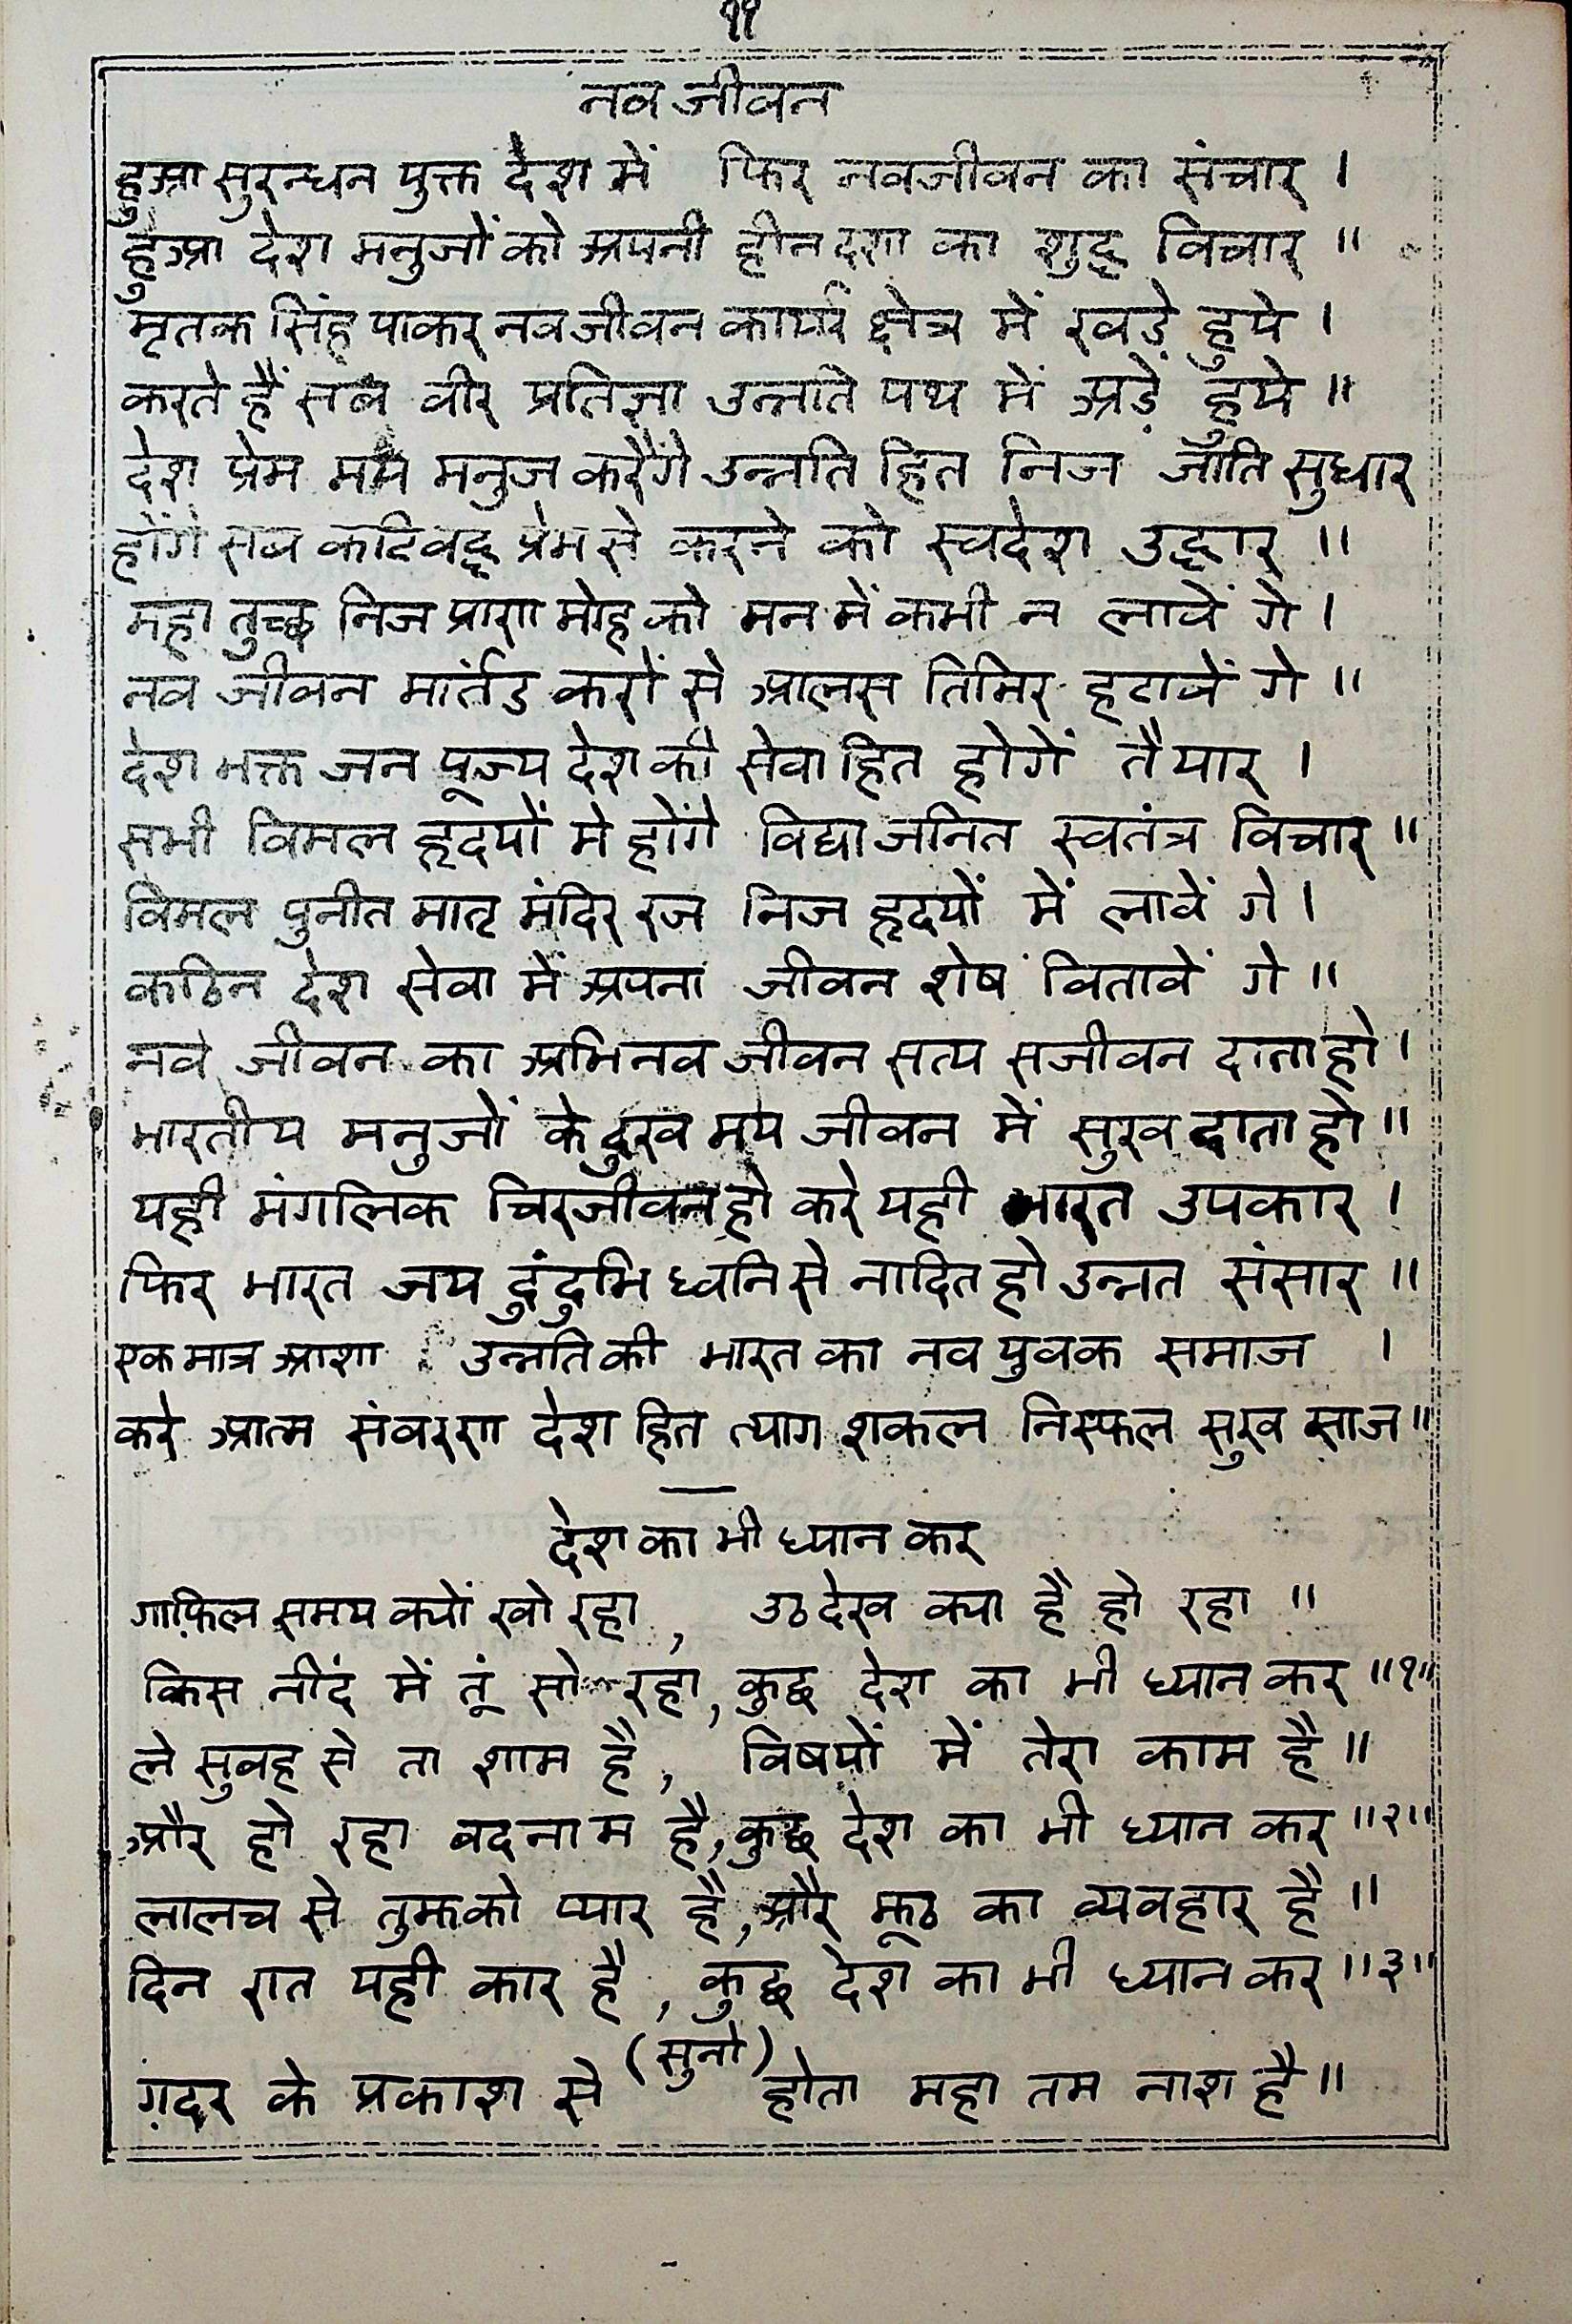 ११
नव जीवन
हुआ सुरन्धन युक्त देश में फिर नवजीवन का संचार ।
हुआ देश मनुजों को अपनी हीन दशा का शुद्ध विचार ॥
मृतक सिंह पाकर नवजीवन कार्य्य क्षेत्र में खड़े हुये ।
करते हैं सब वीर प्रतिज्ञा उन्नति पथ में अड़े हुये ॥
देश प्रेम मय मनुज करैंगे उन्नति हित निज जाति सुधार
होंगे सब कटिवद्ध प्रेम से करने को स्वदेश उद्धार ॥
महा तुच्छ निज प्राण मोह को मन में कभी न लावें गे ।
नव जीवन मार्तंड करों से आलस तिमिर हटावें गे ॥
देश भक्त जन पूज्य देश की सेवा हित होगें तैयार ।
सभी विमल हृदयों मे होंगे विद्या जनित स्वतंत्र विचार ॥
विमल पुनीत मातृ मंदिर रज निज हृदयों में लावें गे ।
कठिन देश सेवा में अपना जीवन शेष वितावें गे ॥
नव जीवन का अभिनव जीवन सत्य सजीवन दाता हो ।
भारतीय मनुजों के दुख मय जीवन में सुख दाता हो ॥
यही मंगलिक चिरजीवन हो करे यही भारत उपकार ।
फिर भारत जय दुंदुभि ध्वनि से नादित हो उन्नत संसार ॥
एक मात्र आशा उन्नति की भारत का नव युवक समाज ।
करे आत्म संवरण देश हित त्याग शकल निस्फल सुख साज ॥
देश का भी ध्यान कर
गाफ़िल समय क्यों खो रहा , उठ देख क्या है हो रहा ॥
किस नींद में तूं सो रहा, कुछ देश का भी ध्यान कर ॥१॥
ले सुवह से ता शाम है , विषयों में तेरा काम है ॥
और हो रहा बदनाम है, कुछ देश का भी ध्यान कर ॥२॥
लालच से तुझको प्यार है, और झूठ का व्यवहार है ॥
दिन रात यही कार है , कुछ देश का भी ध्यान कर ॥३॥
ग़दर के प्रकाश से (सुनो) होता महा तम नाश है ॥